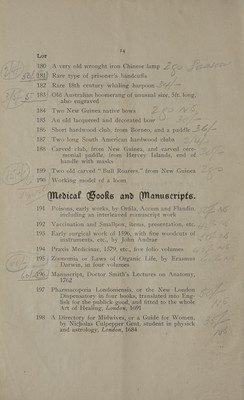 54
Lot
180 A very old wrought iron Chinese lamp
181 Rare type of prisoner's handcuffs
182 Rare 18th century whaling harpoon
183 Old Australian boomerang of unusual size, 3ft. long,
also engraved
184 Two New Guinea native bows
185 An old lacquered and decorated bow
186 Short hardwood club, from Borneo, and a paddle
187 Two long South American hardwood clubs
188 Carved club, from New Guinea, and carved cere-
monial paddle, from Hervey Islands, end of
handle with masks
189 Two old carved "Bull Roarers," from New Guinea
190 Working model of a loom
Medical Books and Manuscripts.
191 Poisons, early works, by Orfila, Accum and Flandin,
including an interleaved manuscript work
192 Vaccination and Smallpox, items, presentation, etc.
193 Early surgical work of 1596, with fine woodcuts of
instruments, etc., by John Andreæ
194 Praxis Medicinae, 1579, etc., five folio volumes
195 Zoonomia or Laws of Organic Life, by Erasmus
Darwin, in four volumes
196 Manuscript, Doctor Smith's Lectures on Anatomy,
1762
197 Pharmacopœia Londonensis, or the New London
Dispensatory in four books, translated into Eng-
lish for the publick good, and fitted to the whole
Art of Healing, London, 1691
198 A Directory for Midwives, or a Guide for Women,
by Nicholas Culpepper Gent, student in physick
and astrology, London, 1684